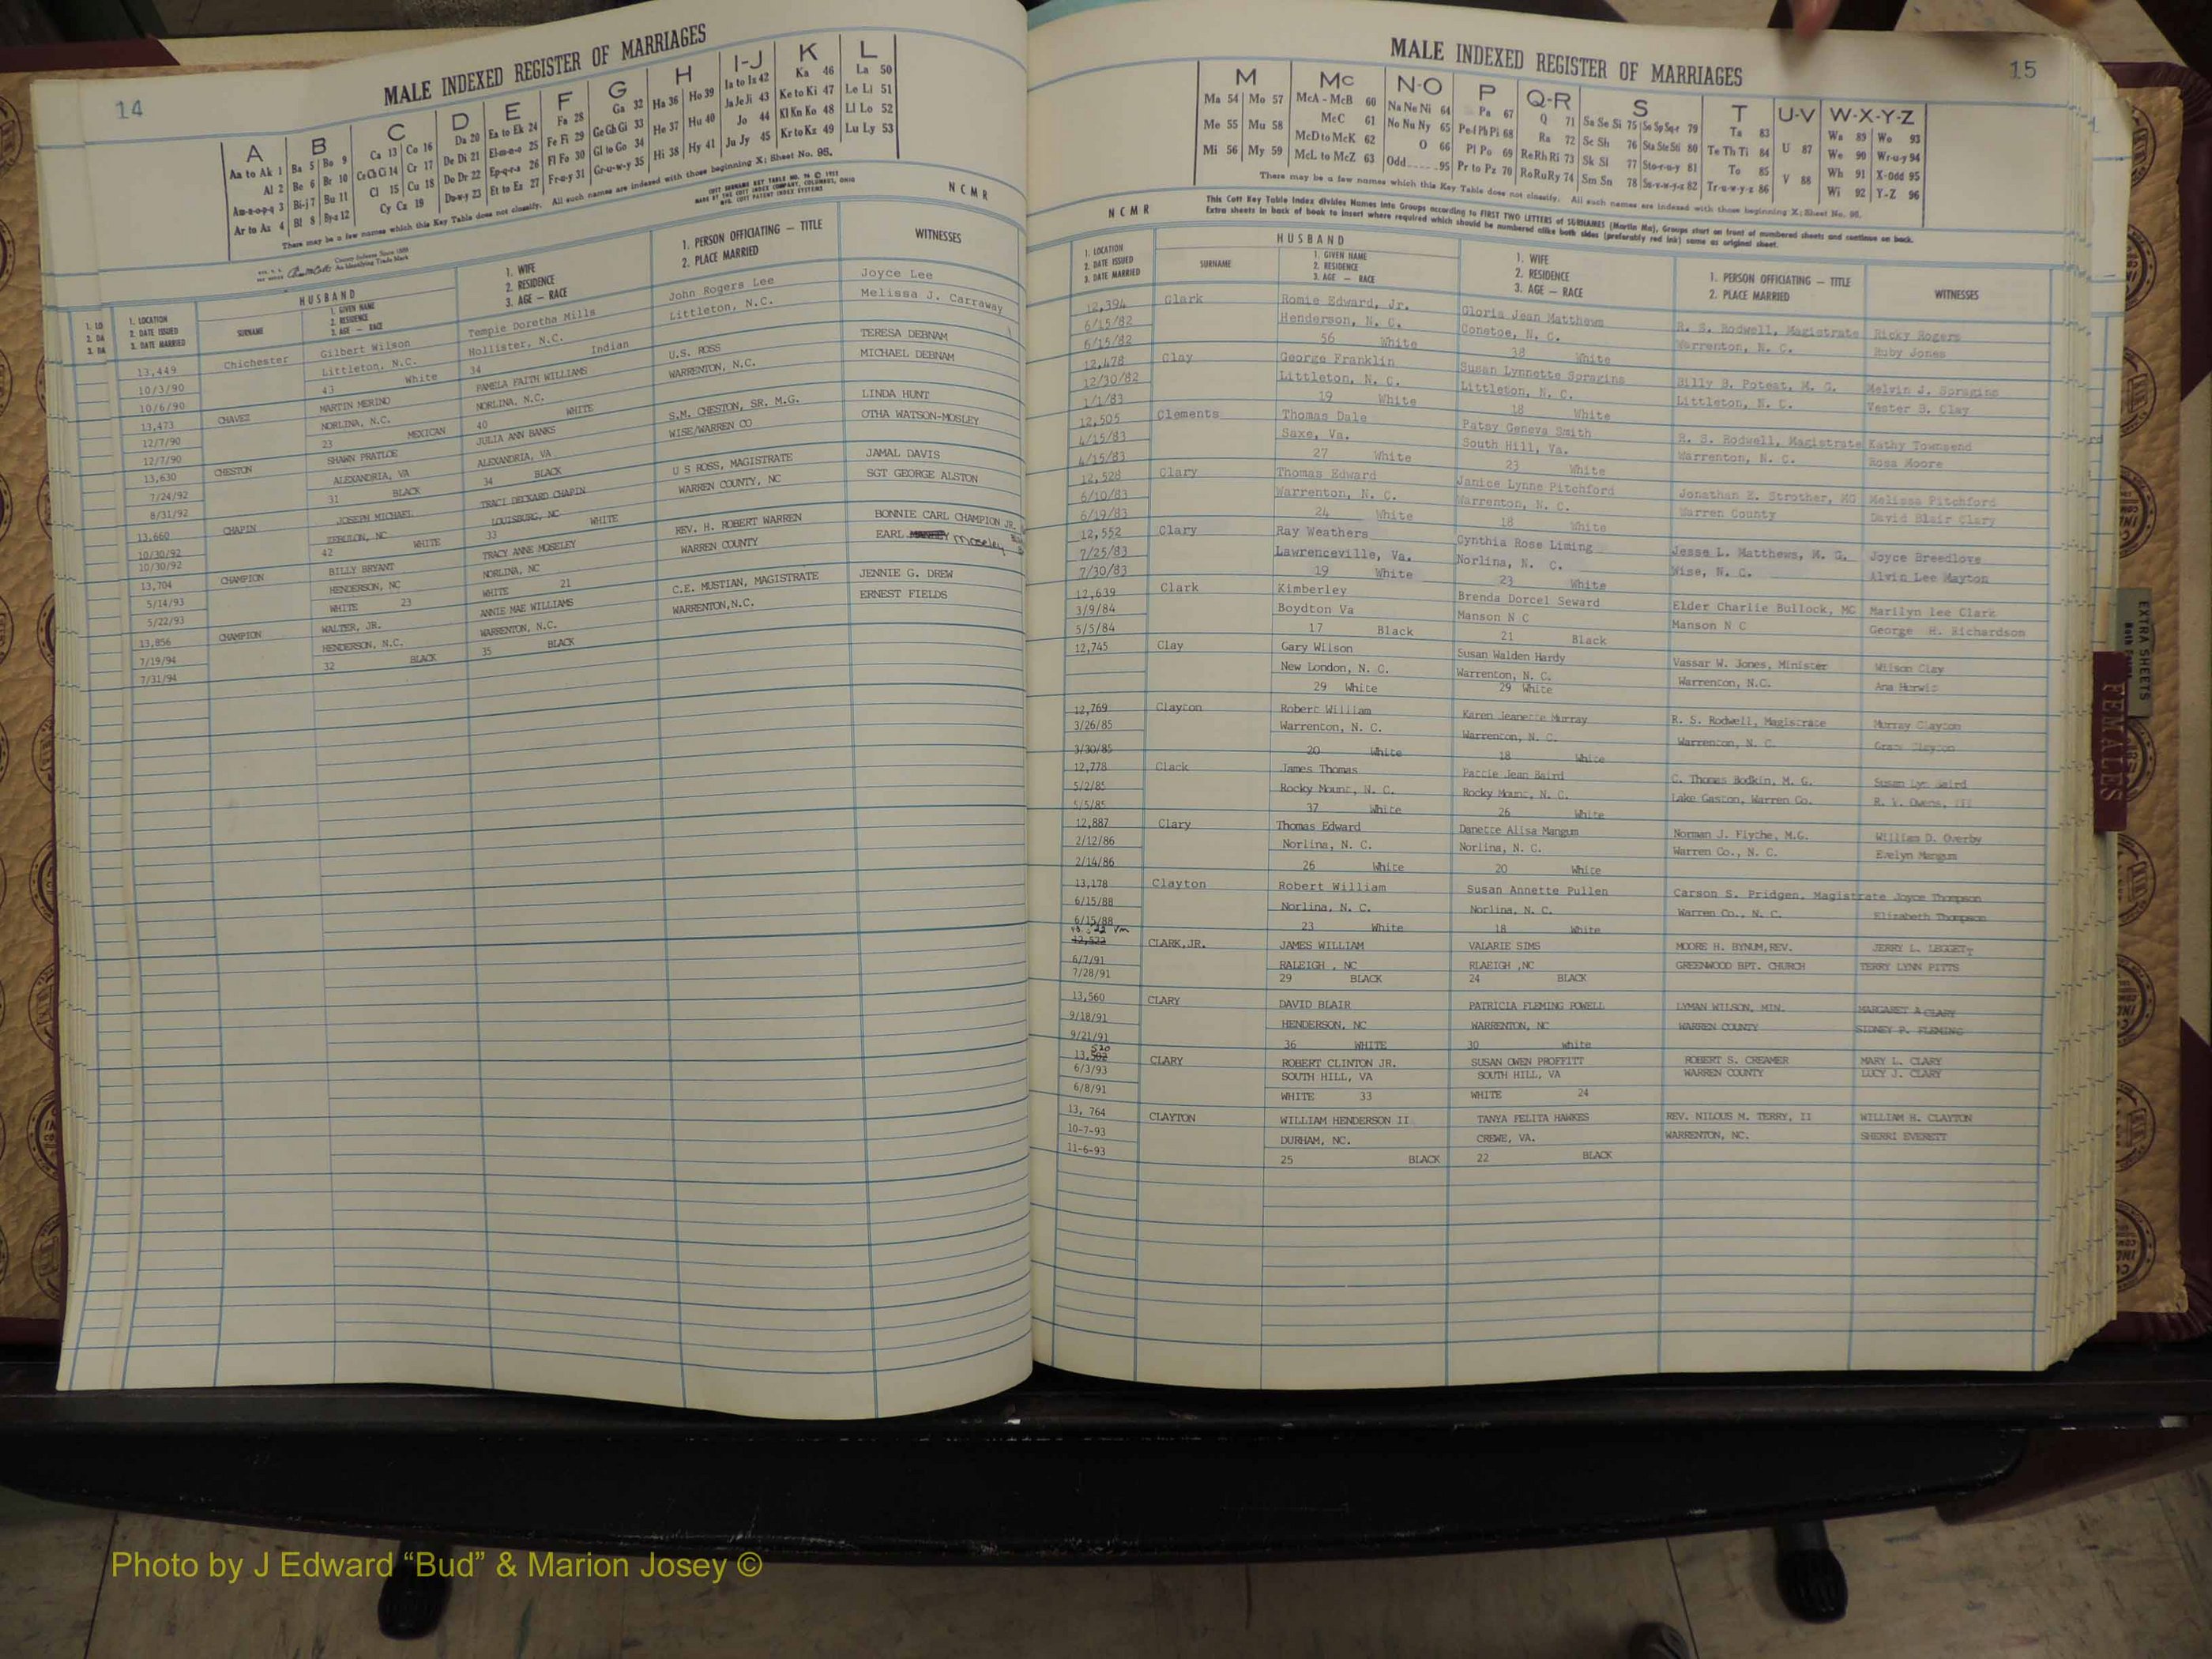 14
MALE INDEXED REGISTER OF MARRIAGES
A B C D E F G H I-J K L
Aa to Ak 1 Ba 5 Bo 9 Ca 13 Co 16 Da 20 Ea to Ek 24 Fa 28 Ga 32 Ha 36 Ho 39 Ia to Iz 42 Ka 46 La 50
Al 2 Be 6 Br 10 Ce Ch Ci 14 Cr 17 De Di 21 El-m-n-o 25 Fe Fi 29 Ge Gh Gi 33 He 37 Hu 40 Ja Je Ji 43 Ke to Ki 47 Le Li 51
Am-n-o-p-q 3 Bi-j 7 Bu 11 Cl 15 Cu 18 Do Dr 22 Ep-q-r-s 26 Fl Fo 30 Gl to Go 34 Hi 38 Hy 41 Jo 44 Kl Kn Ko 48 Ll Lo 52
Ar to Az 4 Bl 8 By-z 12 Cy Cz 19 Du-w-y 23 Et to Ez 27 Fr-u-y 31 Gr-u-w-y 35 Ju Jy 45 Kr to Kz 49 Lu Ly 53
There may be a few names which this Key Table does not classify. All such names are indexed with those beginning X; Sheet No. 96.
N C M R
HUSBAND
1. LOCATION
2. DATE ISSUED
3. DATE MARRIED
SURNAME
1. GIVEN NAME
2. RESIDENCE
3. AGE — RACE
1. WIFE
2. RESIDENCE
3. AGE — RACE
1. PERSON OFFICIATING — TITLE
2. PLACE MARRIED
WITNESSES
13,449 Chichester Gilbert Wilson Tempie Doretha Mills John Rogers Lee Joyce Lee
10/3/90 Littleton, N.C. Hollister, N.C. Littleton, N.C. Melissa J. Carraway
10/6/90 43 White 34 Indian
13,473 CHAVEZ MARTIN MERINO PAMELA FAITH WILLIAMS U.S. ROSS TERESA DEBNAM
12/7/90 NORLINA, N.C. NORLINA, N.C. WARRENTON, N.C. MICHAEL DEBNAM
12/7/90 23 MEXICAN 40 WHITE
13,630 CHESTON SHAWN PRATLOE JULIA ANN BANKS S.M. CHESTON, SR. M.G. LINDA HUNT
7/24/92 ALEXANDRIA, VA ALEXANDRIA, VA WISE/WARREN CO OTHA WATSON-MOSLEY
8/31/92 31 BLACK 34 BLACK
13,660 CHAPIN JOSEPH MICHAEL TRACI DECKARD CHAPIN U S ROSS, MAGISTRATE JAMAL DAVIS
10/30/92 ZEBULON, NC LOUISBURG, NC WARREN COUNTY, NC SGT GEORGE ALSTON
10/30/92 42 WHITE 33 WHITE
13,704 CHAMPION BILLY BRYANT TRACY ANNE MOSELEY REV. H. ROBERT WARREN BONNIE CARL CHAMPION JR.
5/14/93 HENDERSON, NC NORLINA, NC WARREN COUNTY EARL Moseley
5/22/93 WHITE 23 WHITE 21
13,856 CHAMPION WALTER, JR. ANNIE MAE WILLIAMS C.E. MUSTIAN, MAGISTRATE JENNIE G. DREW
7/19/94 HENDERSON, N.C. WARRENTON, N.C. WARRENTON,N.C. ERNEST FIELDS
7/31/94 32 BLACK 35 BLACK
15
MALE INDEXED REGISTER OF MARRIAGES
M Mc N-O P Q-R S T U-V W-X-Y-Z
Ma 54 Mo 57 McA - McB 60 Na Ne Ni 64 Pa 67 Q 71 Sa Se Si 75 So Sp Sq-r 79 Ta 83 Wa 89 Wo 93
Me 55 Mu 58 McC 61 No Nu Ny 65 Pe-f Ph Pi 68 Ra 72 Sc Sh 76 Sta Ste Sti 80 Te Th Ti 84 U 87 We 90 Wr-u-y 94
Mi 56 My 59 McD to McK 62 O 66 Pl Po 69 Re Rh Ri 73 Sk Sl 77 Sto-r-u-y 81 To 85 V 88 Wh 91 X-Odd 95
McL to McZ 63 Odd 95 Pr to Pz 70 Ro Ru Ry 74 Sm Sn 78 Su-v-w-y-z 82 Tr-u-w-y-z 86 Wi 92 Y-Z 96
There may be a few names which this Key Table does not classify. All such names are indexed with those beginning X; Sheet No. 96.
This Cott Key Table Index divides Names into Groups according to FIRST TWO LETTERS of SURNAMES (Martin Ma), Groups start on front of numbered sheets and continue on back.
Extra sheets in back of book to insert where required which should be numbered alike both sides (preferably red ink) same as original sheet.
N C M R
HUSBAND
1. LOCATION
2. DATE ISSUED
3. DATE MARRIED
SURNAME
1. GIVEN NAME
2. RESIDENCE
3. AGE — RACE
1. WIFE
2. RESIDENCE
3. AGE — RACE
1. PERSON OFFICIATING — TITLE
2. PLACE MARRIED
WITNESSES
12,394 Clark Romie Edward, Jr. Gloria Jean Matthews R. S. Rodwell, Magistrate Ricky Rogers
6/15/82 Henderson, N. C. Conetoe, N. C. Warrenton, N. C. Ruby Jones
6/15/82 56 White 38 White
12,478 Clay George Franklin Susan Lynnette Spragins Billy B. Poteat, M. G. Melvin J. Spragins
12/30/82 Littleton, N. C. Littleton, N. C. Littleton, N. C. Vester B. Clay
1/1/83 19 White 18 White
12,505 Clements Thomas Dale Patsy Geneva Smith R. S. Rodwell, Magistrate Kathy Townsend
4/15/83 Saxe, Va. South Hill, Va. Warrenton, N. C. Ross Moore
4/15/83 27 White 23 White
12,528 Clary Thomas Edward Janice Lynne Pitchford Jonathan E. Strother, MG Melissa Pitchford
6/10/83 Warrenton, N. C. Warrenton, N. C. Warren County David Blair Clary
6/19/83 24 White 18 White
12,552 Clary Ray Weathers Cynthia Rose Liming Jesse L. Matthews, M. G. Joyce Breedlove
7/25/83 Lawrenceville, Va. Norlina, N. C. Wise, N. C. Alvin Lee Mayton
7/30/83 19 White 23 White
12,639 Clark Kimberley Brenda Dorcel Seward Elder Charlie Bullock, MG Marilyn lee Clark
3/9/84 Boydton Va Manson N C Manson N C George H. Richardson
5/5/84 17 Black 21 Black
12,745 Clay Gary Wilson Susan Walden Hardy Vassar W. Jones, Minister Wilson Clay
New London, N. C. Warrenton, N. C. Warrenton, N.C. Ana
29 White 29 White
12,769 Clayton Robert William Karen Jeanette Murray R. S. Rodwell, Magistrate Murray Clayton
3/26/85 Warrenton, N. C. Warrenton, N. C. Warrenton, N. C. Clayton
3/30/85 20 White 18 White
12,778 Clack James Thomas Pattie Jean Baird C. Thomas Bodkin, M. G. Susan Lyn Baird
5/2/85 Rocky Mount, N. C. Rocky Mount, N. C. Lake Gaston, Warren Co. R. Owens, III
5/5/85 37 White 26 White
12,887 Clary Thomas Edward Danette Alisa Mangum Norman J. Flythe, M.G. William D. Overby
2/12/86 Norlina, N. C. Norlina, N. C. Warren Co., N. C. Evelyn Mangum
2/14/86 26 White 20 White
13,178 Clayton Robert William Susan Annette Pullen Carson S. Pridgen, Magistrate Joyce Thompson
6/15/88 Norlina, N. C. Norlina, N. C. Warren Co., N. C. Elizabeth Thompson
6/15/88 23 White 18 White
13,522 CLARK,JR. JAMES WILLIAM VALARIE SIMS MOORE H. BYNUM,REV. JERRY L. LEGGETT
6/7/91 RALEIGH , NC RLAEIGH ,NC GREENWOOD BPT. CHURCH TERRY LYNN PITTS
7/28/91 29 BLACK 24 BLACK
13,560 CLARY DAVID BLAIR PATRICIA FLEMING POWELL LYMAN WILSON, MIN. MARGARET A CLARY
9/18/91 HENDERSON, NC WARRENTON, NC WARREN COUNTY SIDNEY P. FLEMING
9/21/91 36 WHITE 30 white
520
13,502 CLARY ROBERT CLINTON JR. SUSAN OWEN PROFFITT ROBERT S. CREAMER MARY L. CLARY
6/3/93 SOUTH HILL, VA SOUTH HILL, VA WARREN COUNTY LUCY J. CLARY
6/8/91 WHITE 33 WHITE 24
13, 764 CLAYTON WILLIAM HENDERSON II TANYA FELITA HAWKES REV. NILOUS M. TERRY, II WILLIAM H. CLAYTON
10-7-93 DURHAM, NC. CREWE, VA. WARRENTON, NC. SHERRI EVERETT
11-6-93 25 BLACK 22 BLACK
EXTRA SHEETS
FEMALES
Photo by J Edward “Bud” & Marion Josey ©